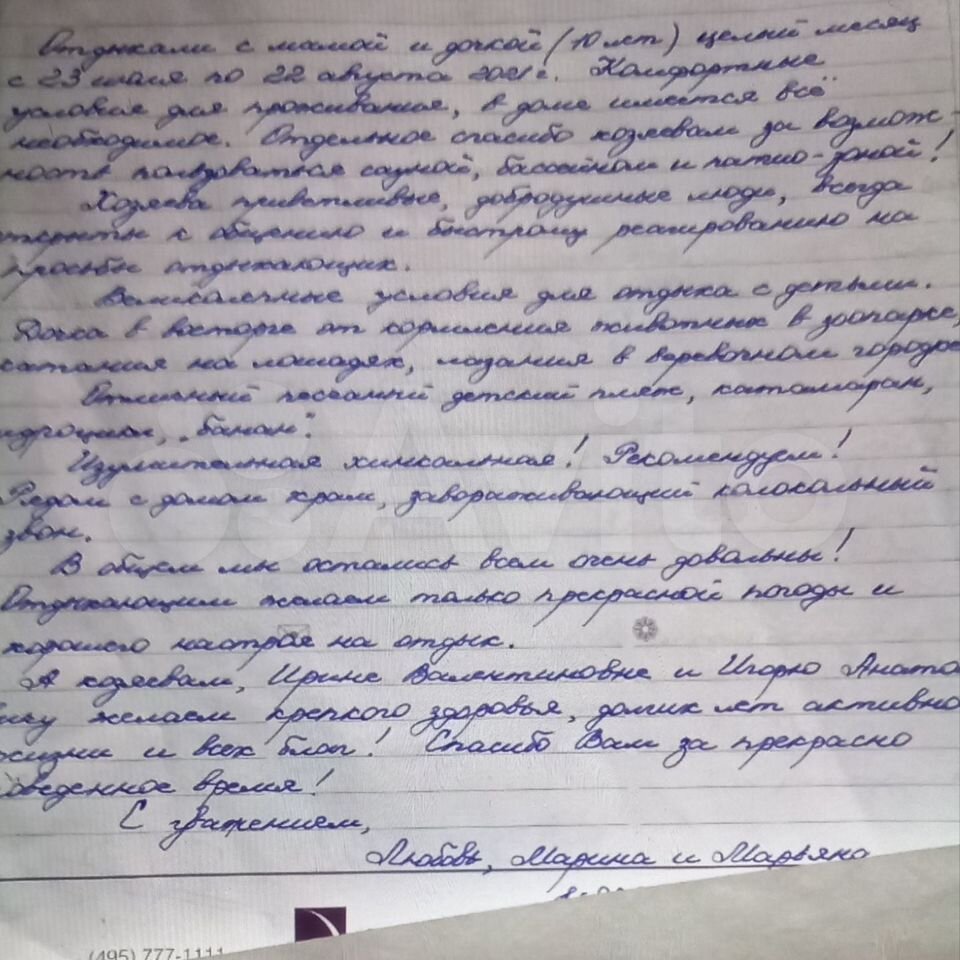 Отдыхали с мамой и дочкой (10 лет) целый месяц
с 23 июля по 22 августа 2021 г. Комфортные
условия для проживания, в доме имеется всё
необходимое. Отдельное спасибо хозяевам за возмож-
ность пользоваться сауной, бассейном и патио-зоной!
Хозяева приветливые, добродушные люди, всегда
открыты к общению и быстрому реагированию на
просьбы отдыхающих.
Великолепные условия для отдыха с детьми.
Дочка в восторге от кормления животных в зоопарке,
катания на лошадях, лазания в веревочном городке
Отличный песчаный детский пляж, катамаран,
идроцикл, "банан".
Изумительная хинкальная! Рекомендуем!
Рядом с домом храм, завораживающий колокольный
звон.
В общем мы остались всем очень довольны!
Отдыхающим желаем только прекрасной погоды и
хорошего настроя на отдых.
А хозяевам, Ирине Валентиновне и Игорю Анато
вичу желаем крепкого здоровья, долгих лет активно
жизни и всех благ! Спасибо Вам за прекрасно
оведенное время!
С уважением,
Любовь, Марина и Марьяна
(495) 777-1111
Avito